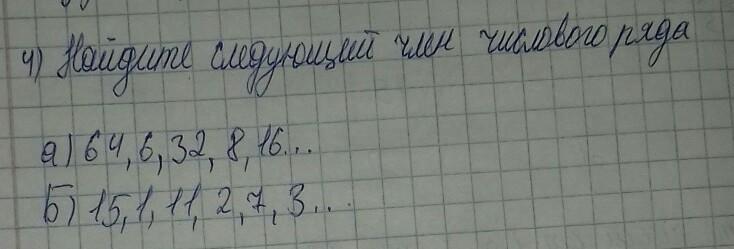 4) Найдите следующий член числового ряда
а) 64, 6, 32, 8, 16...
Б) 15, 1, 11, 2, 7, 3...